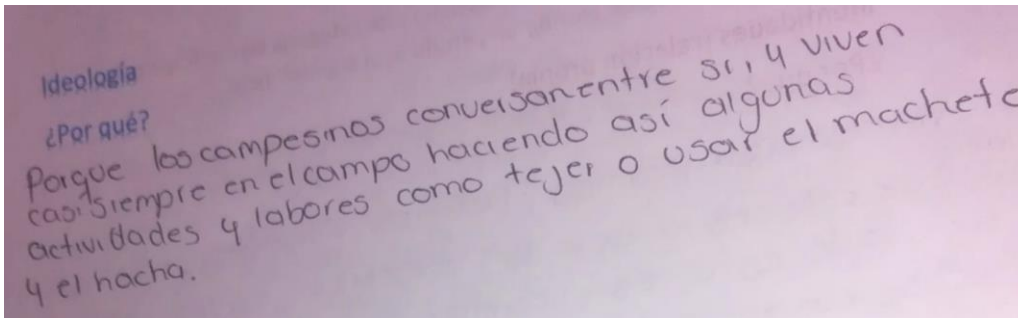 Ideología
¿Por qué?
Porque los campesinos conversan entre si, y viven
casi siempre en el campo haciendo así algunas
actividades y labores como tejer o usar el machete
y el hacha.